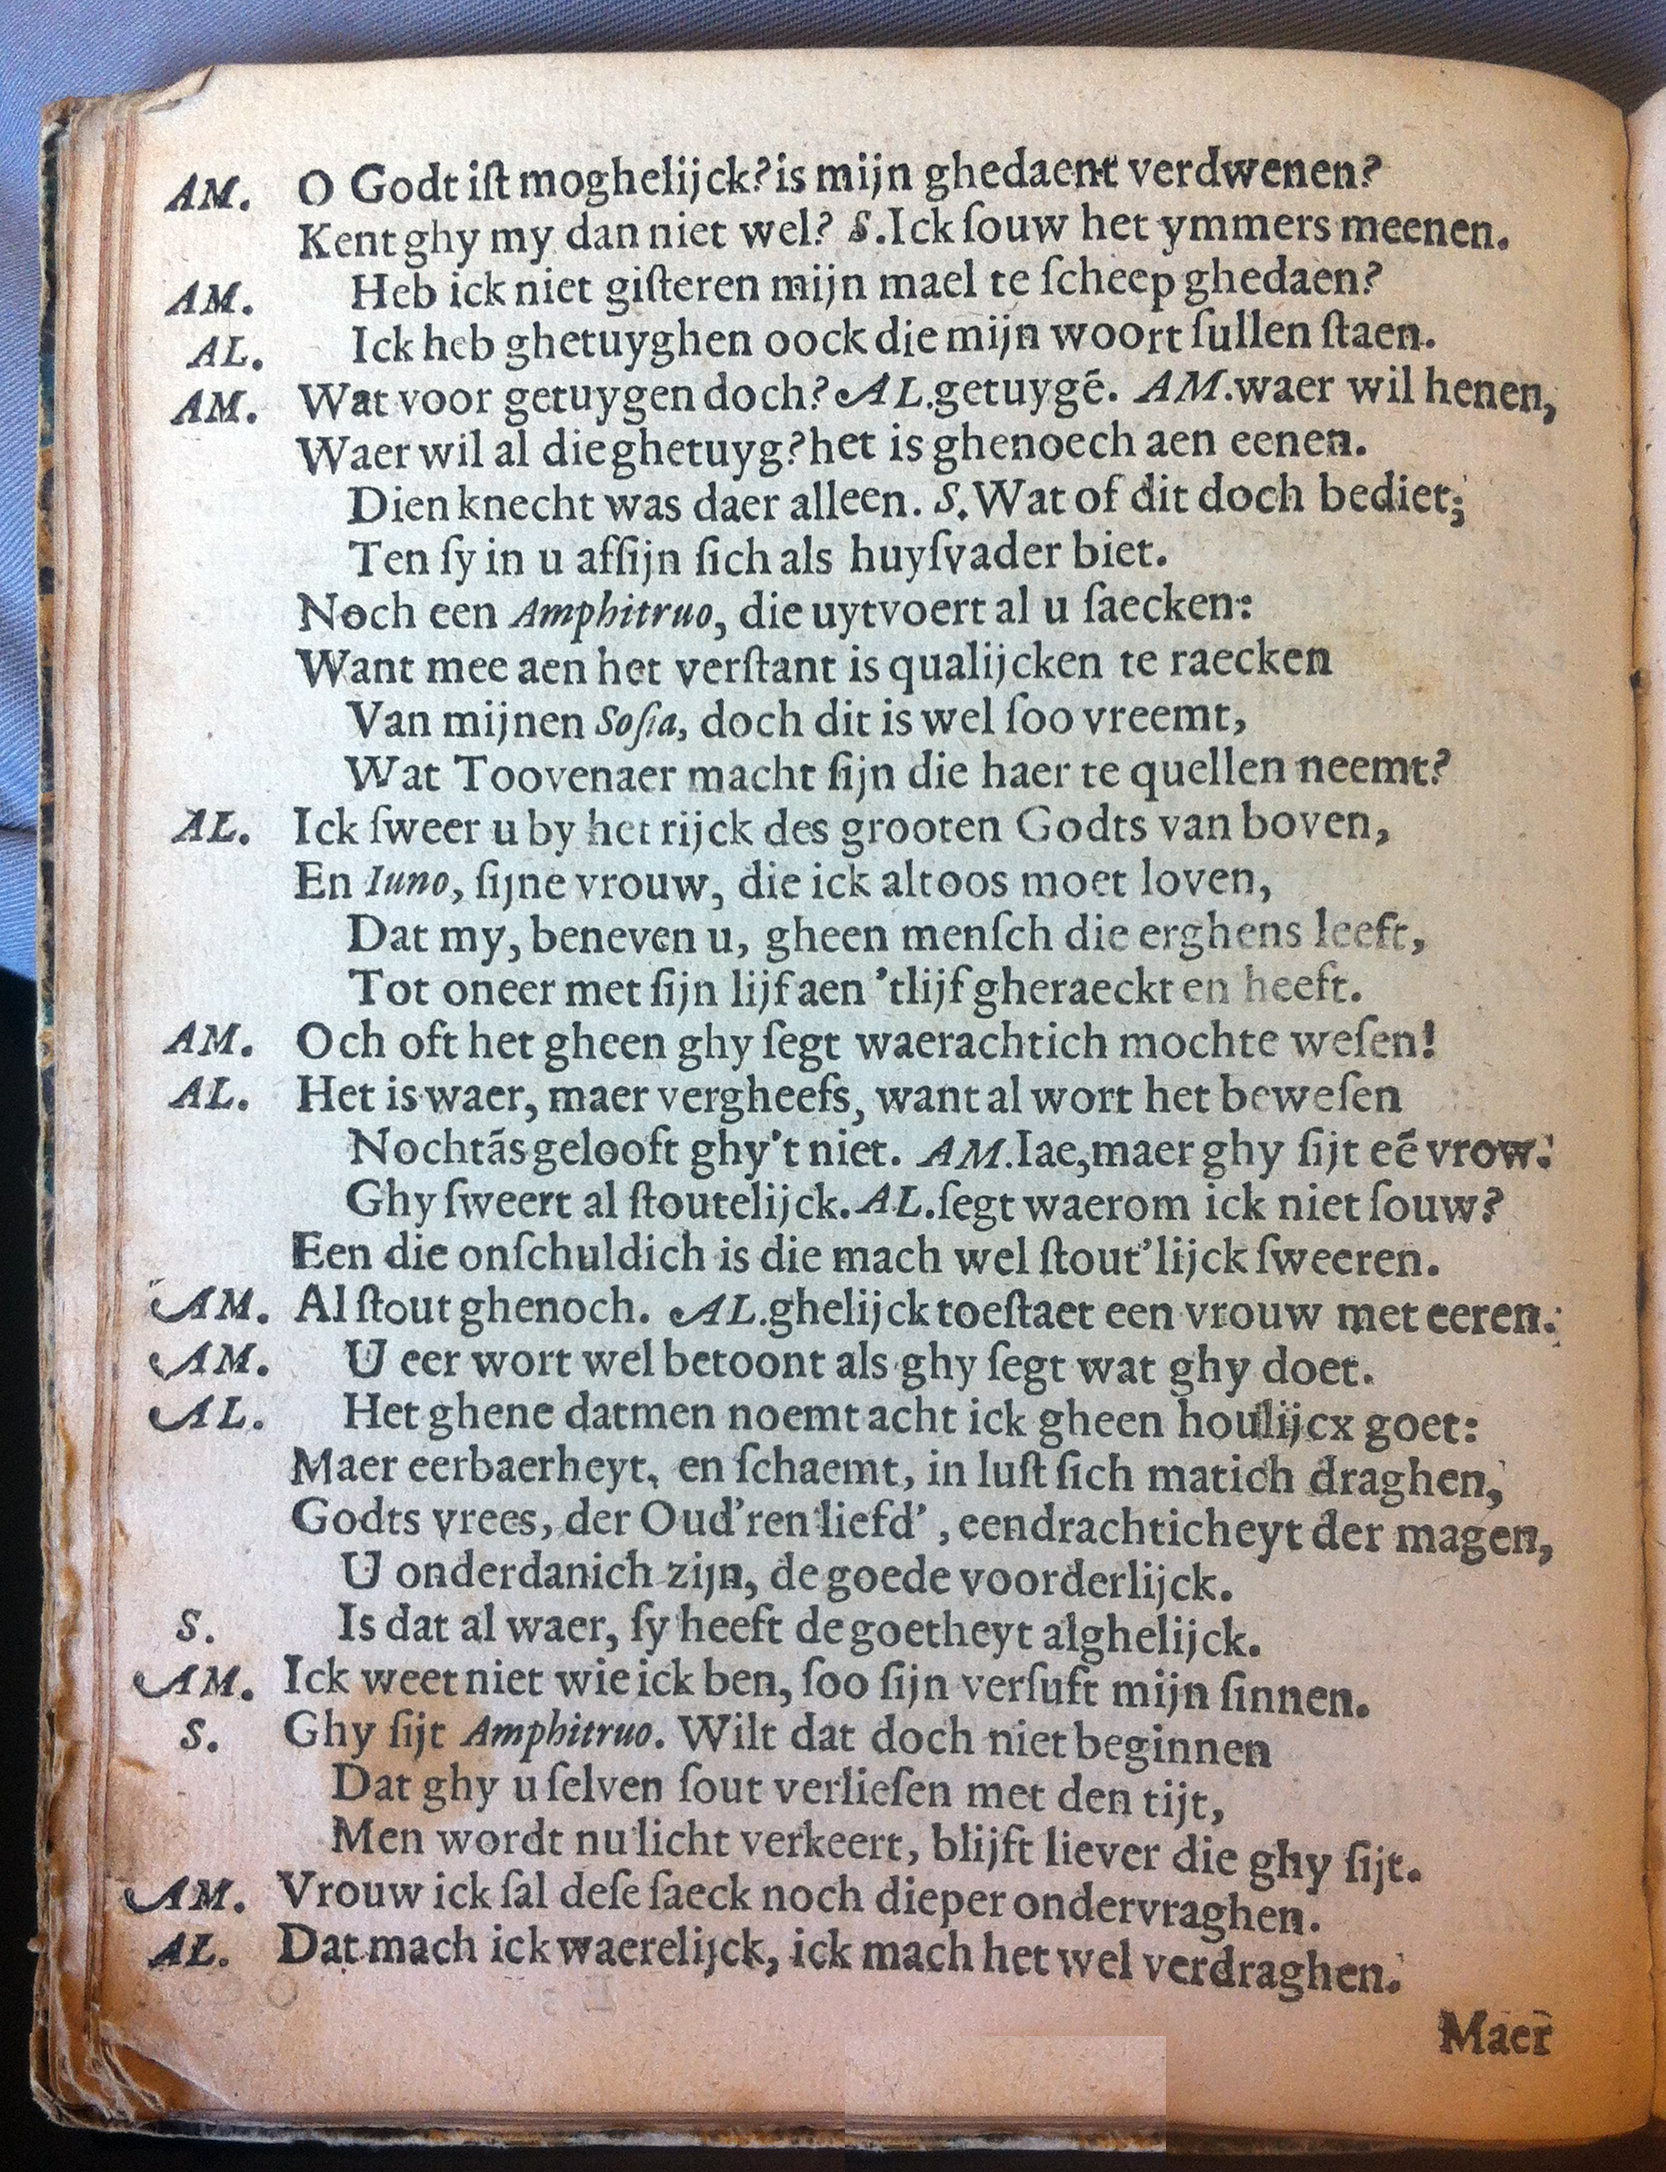 AM. O Godt iſt moghelijck? is mijn ghedaent verdwenen?
Kent ghy my dan niet wel? S. Ick ſouw het ymmers meenen.
AM. Heb ick niet giſteren mijn mael te ſcheep ghedaen?
AL. Ick heb ghetuyghen oock die mijn woort ſullen ſtaen.
AM. Wat voor getuygen doch? AL. getuygē. AM. waer wil henen,
Waer wil al die ghetuyg? het is ghenoech aen eenen.
Dien knecht was daer alleen. S. Wat of dit doch bediet;
Ten ſy in u afſijn ſich als huyſvader biet.
Noch een Amphitruo, die uytvoert al u ſaecken:
Want mee aen het verſtant is qualijcken te raecken
Van mijnen Soſia, doch dit is wel ſoo vreemt,
Wat Toovenaer macht ſijn die haer te quellen neemt?
AL. Ick ſweer u by het rijck des grooten Godts van boven,
En Iuno, ſijne vrouw, die ick altoos moet loven,
Dat my, beneven u, gheen menſch die erghens leeft,
Tot oneer met ſijn lijf aen 'tlijf gheraeckt en heeft.
AM. Och oft het gheen ghy ſegt waerachtich mochte weſen!
AL. Het is waer, maer vergheefs, want al wort het beweſen
Nochtās gelooft ghy't niet. AM. Iae, maer ghy ſijt eē vrow.
Ghy ſweert al ſtoutelijck. AL. ſegt waerom ick niet ſouw?
Een die onſchuldich is die mach wel ſtout'lijck ſweeren.
AM. Al ſtout ghenoch. AL. ghelijck toeſtaet een vrouw met eeren.
AM. U eer wort wel betoont als ghy ſegt wat ghy doet.
AL. Het ghene datmen noemt acht ick gheen houlijcx goet:
Maer eerbaerheyt, en ſchaemt, in luſt ſich matich draghen,
Godts vrees, der Oud'ren liefd', eendrachticheyt der magen,
U onderdanich zijn, de goede voorderlijck.
S. Is dat al waer, ſy heeft de goetheyt alghelijck.
AM. Ick weet niet wie ick ben, ſoo ſijn verſuft mijn ſinnen.
S. Ghy ſijt Amphitruo. Wilt dat doch niet beginnen
Dat ghy u ſelven ſout verlieſen met den tijt,
Men wordt nu licht verkeert, blijft liever die ghy ſijt.
AM. Vrouw ick ſal deſe ſaeck noch dieper ondervraghen.
AL. Dat mach ick waerelijck, ick mach het wel verdraghen.
Maer